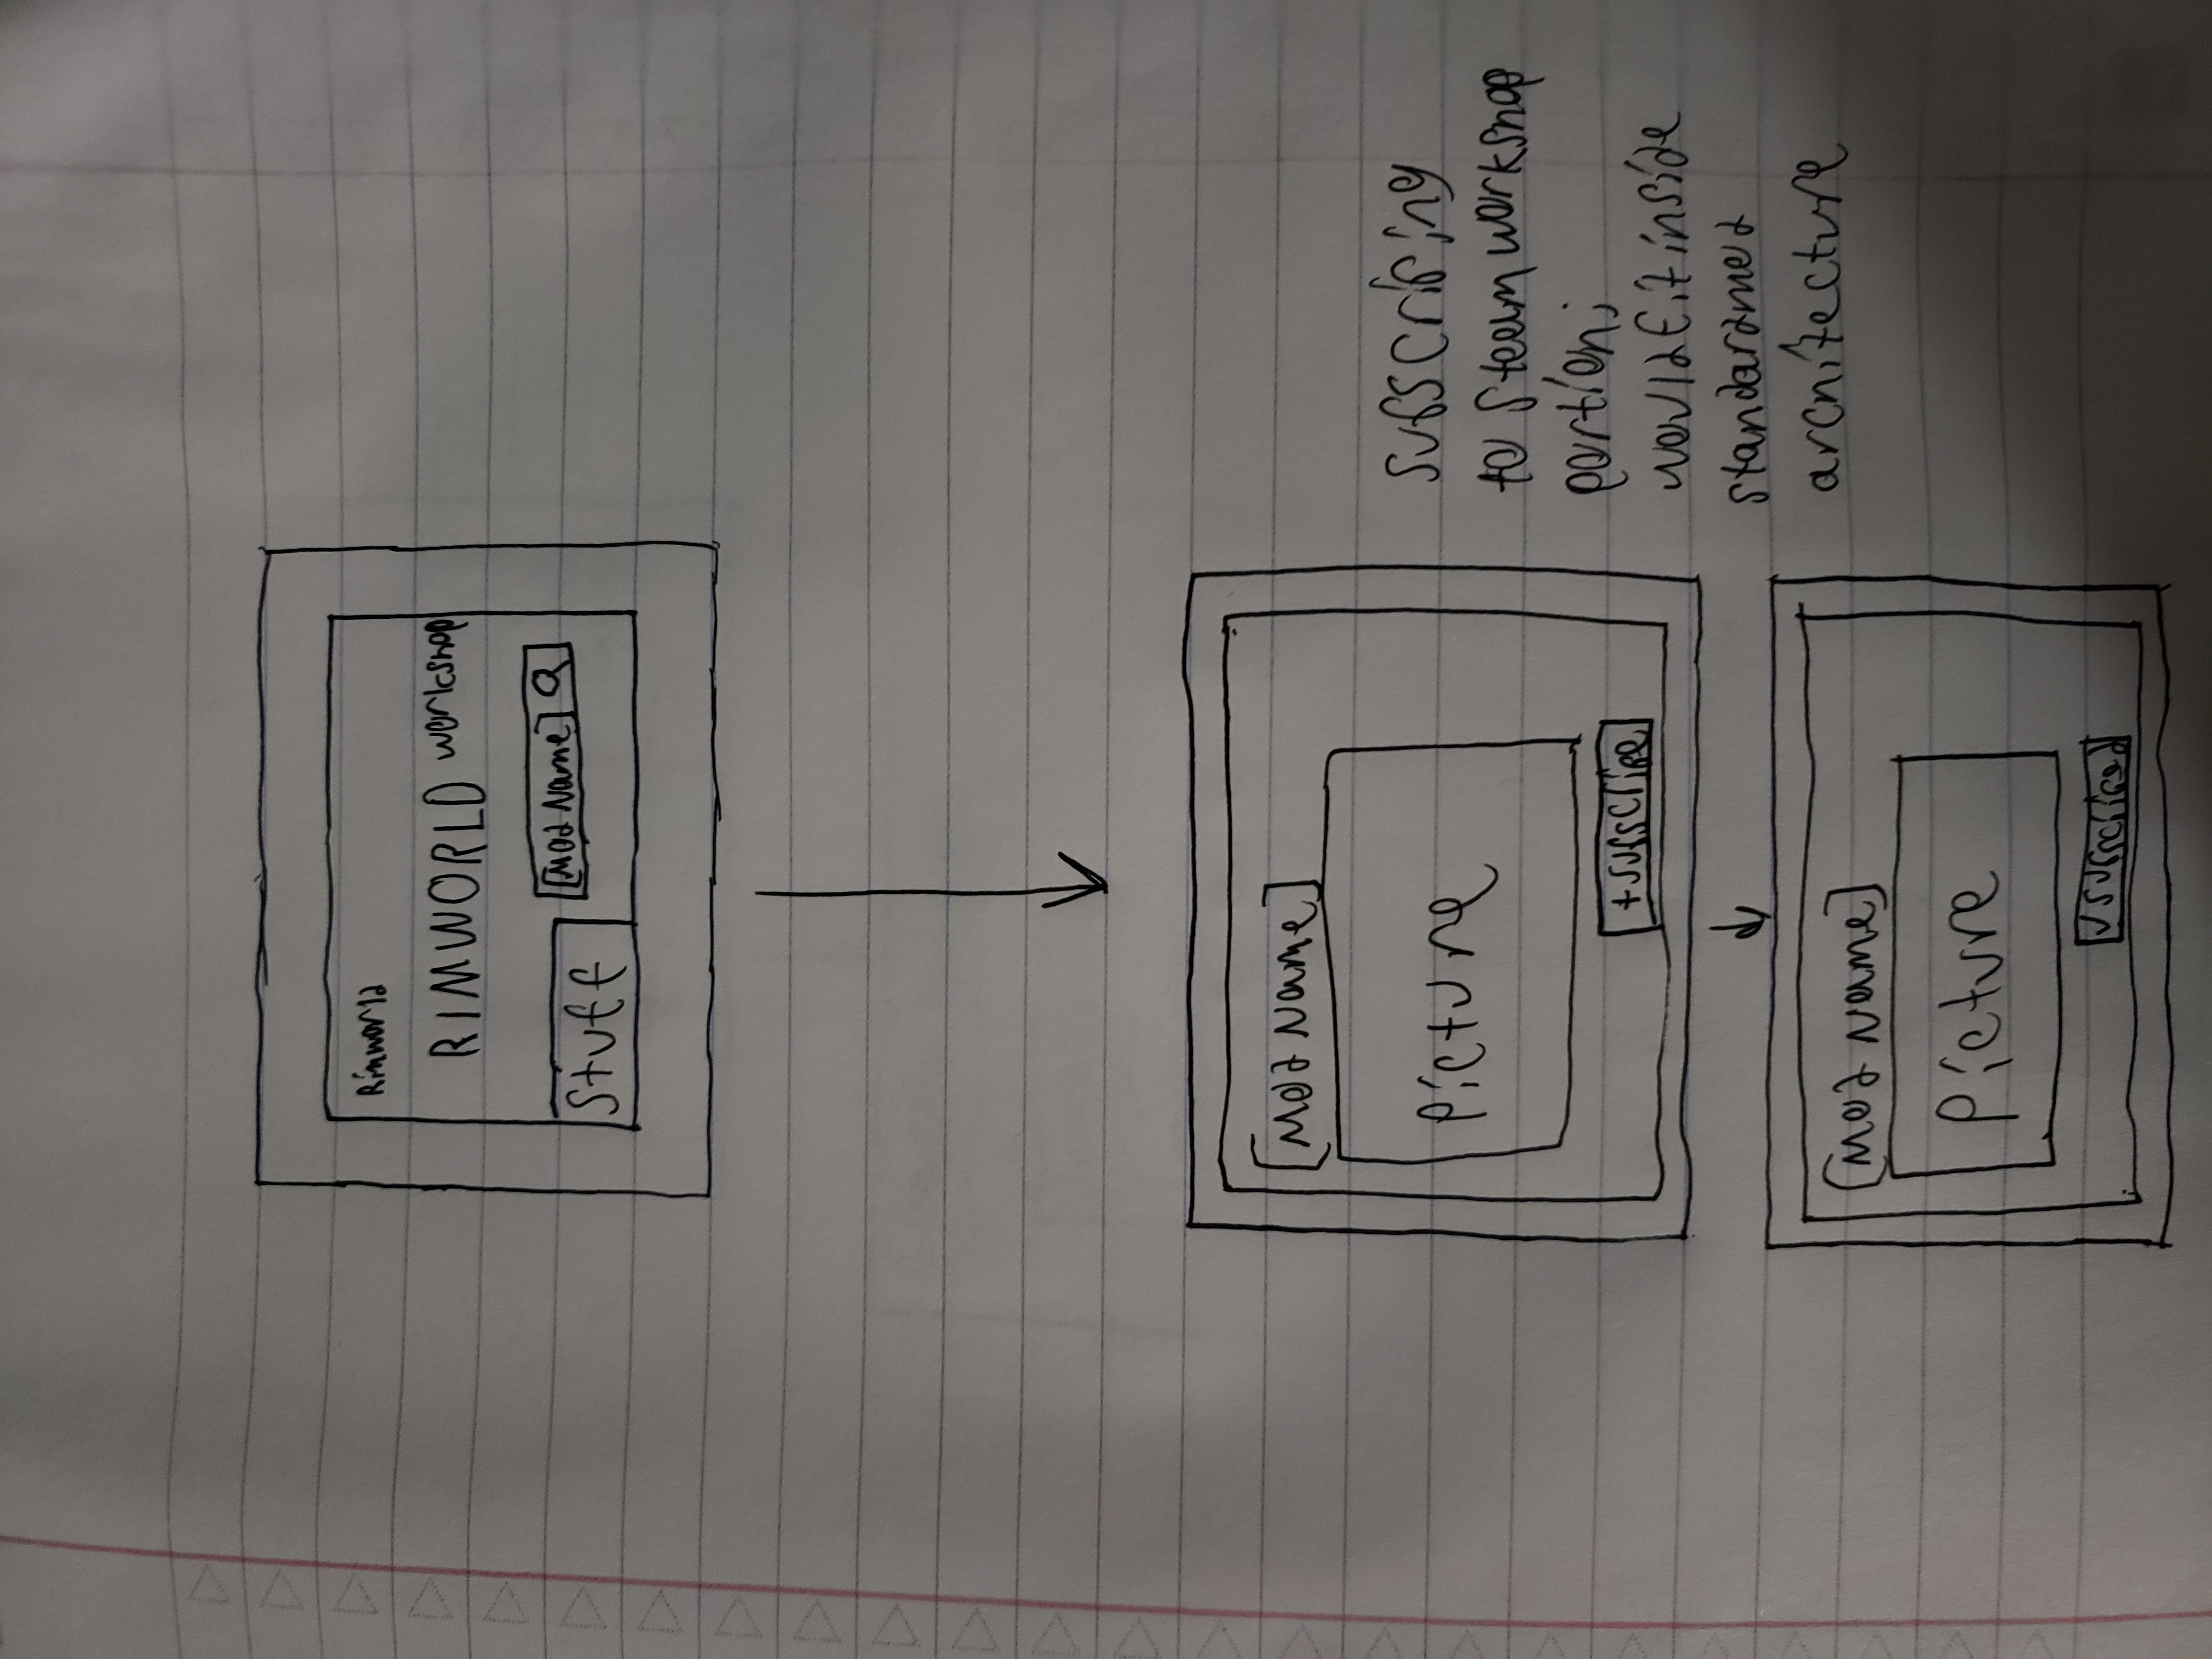 Rimworld
RIMWORLD workshop
[Mod Name]
Stuff
[Mod Name]
Picture
+subscribe
subscribing
to Steam workshop
portion;
would fit inside
standard mod
architecture
[Mod Name]
Picture
✓subscribed